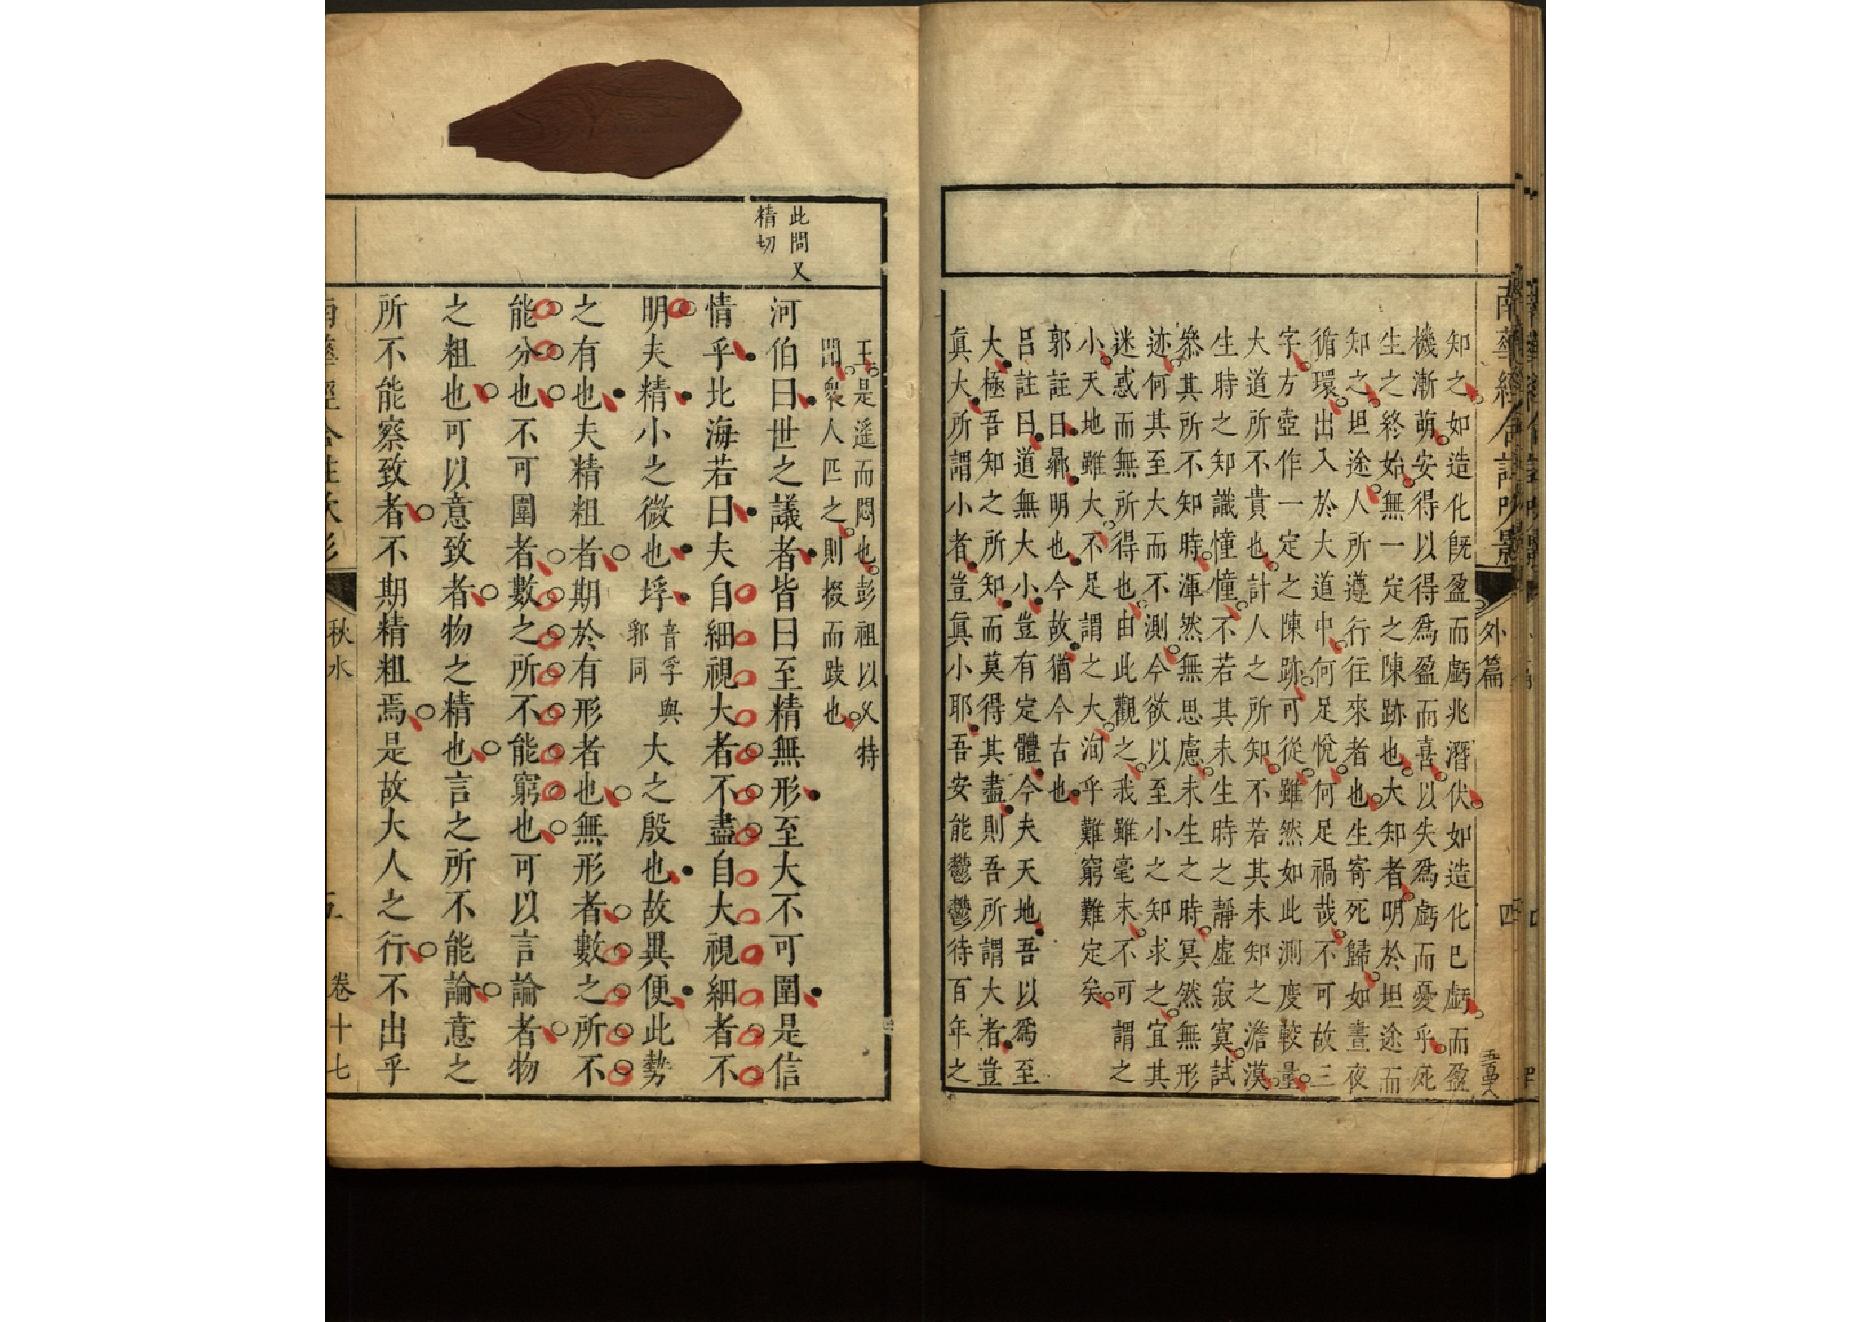 南華經合註吹影
外篇
四
知之如造化旣盈而虧兆潛伏如造化巳虧而盈
機漸萌安得以得爲盈而喜以失爲虧而憂乎死
生之終始無一定之陳跡也大知者明於坦途而
知之坦途人所遵行往來者也生寄死歸如晝夜
循環出入於大道中何足悅何足禍哉不可故三
字方壺作一定之陳跡可從雖然如此測度較量
大道所不貴也計人之所知不若其未知之澹漠
生時之知識憧憧不若其未生時之靜虛寂寞試
叅其所不知時渾然無思慮未生之時冥然無形
迹何其至大而不測今欲以至小之知求之宜其
迷惑而無所得也由此觀之我雖毫末不可謂之
小天地雖大不足謂之大洵乎難窮難定矣
郭註曰曏明也今故猶今古也
呂註曰道無大小豈有定體今夫天地吾以爲至
大極吾知之所知而莫得其盡則吾所謂大者豈
眞大所謂小者豈眞小耶吾安能鬱鬱待百年之
此問又
精切
王是遥而悶也彭祖以乆特
聞衆人匹之則掇而跂也
河伯曰世之議者皆曰至精無形至大不可圍是信
情乎北海若曰夫自細視大者不盡自大視細者不
明夫精小之微也垺音孚與郛同大之殷也故異便此勢
之有也夫精粗者期於有形者也無形者數之所不
能分也不可圍者數之所不能窮也可以言論者物
之粗也可以意致者物之精也言之所不能論意之
所不能察致者不期精粗焉是故大人之行不出乎
南華經合註吹影
秋水
五
卷十七